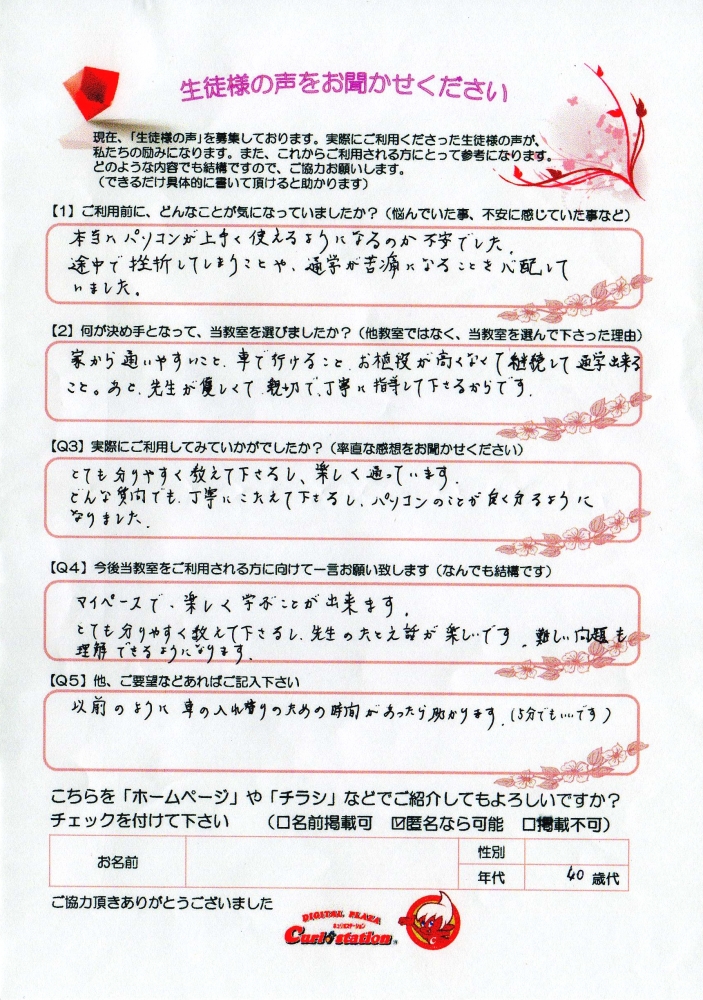 生徒様の声をお聞かせください
現在、「生徒様の声」を募集しております。実際にご利用くださった生徒様の声が、
私たちの励みになります。また、これからご利用される方にとって参考になります。
どのような内容でも結構ですので、ご協力お願いします。
（できるだけ具体的に書いて頂けると助かります）
【1】ご利用前に、どんなことが気になっていましたか？（悩んでいた事、不安に感じていた事など）
本当にパソコンが上手く使えるようになるのか不安でした。
途中で挫折してしまうことや、通学が苦痛になることを心配して
いました。
【2】何が決め手となって、当教室を選びましたか？（他教室ではなく、当教室を選んで下さった理由）
家から通いやすいこと、車で行けること、お値段が高くなくて継続して通学出来る
こと。あと、先生が優しくて、親切で、丁寧に指導して下さるからです。
【Q3】実際にご利用してみていかがでしたか？（率直な感想をお聞かせください）
とても分りやすく教えて下さるし、楽しく通っています。
どんな質問でも、丁寧にこたえて下さるし、パソコンのことが良く分るように
なりました。
【Q4】今後当教室をご利用される方に向けて一言お願い致します（なんでも結構です）
マイペースで、楽しく学ぶことが出来ます。
とても分りやすく教えて下さるし、先生のたとえ話が楽しいです。難しい問題も
理解できるようになります。
【Q5】他、ご要望などあればご記入下さい
以前のように車の入れ替りのための時間があったら助かります。（5分でもいいです）
こちらを「ホームページ」や「チラシ」などでご紹介してもよろしいですか？
チェックを付けて下さい　（□名前掲載可　☑匿名なら可能　□掲載不可）
お名前
性別
年代 40 歳代
ご協力頂きありがとうございました
DIGITAL PLAZA
キュリオステーション
Curio station